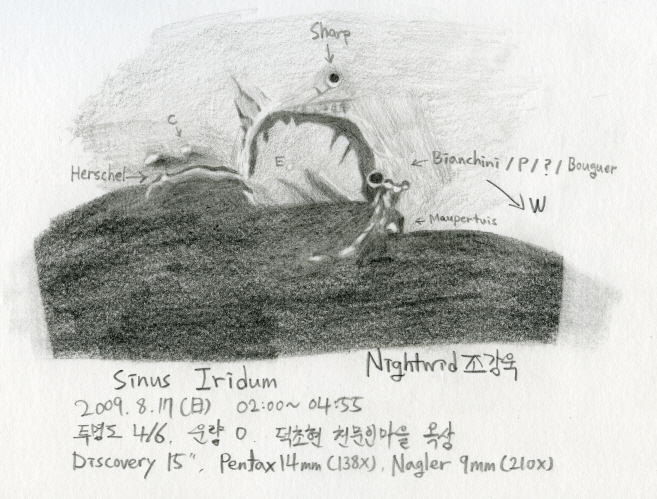 Sharp
C
Herschel
E
Bianchini / P / ? / Bouguer
W
Maupertuis
Nightwid 조강욱
Sinus Iridum
2009. 8. 17 (日) 02:00~ 04:55
투명도 4/6. 운량 0. 덕초현 천문인마을 옥상
Discovery 15", Pentax 14mm (138X), Nagler 9mm (210X)